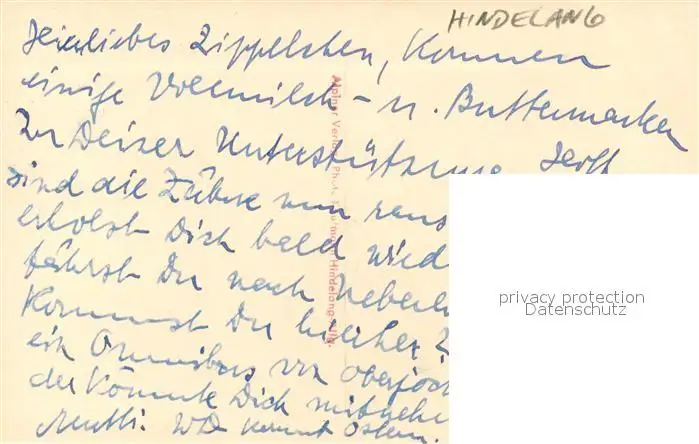 HINDELANG
Zippelchen, Kommen
einige Vollmilch- u. Buttermarken
Zu Deiner Unterstützung
sind die Zähne nun raus
erholst Dich bald wied
fährst Du nach
Kommst Du hierher
ein Omnibus von Oberjoch
der könnte Dich mitnehm
Mutti. kommt Ostern.
Alpiner Verlag Hindelang
privacy protection
Datenschutz